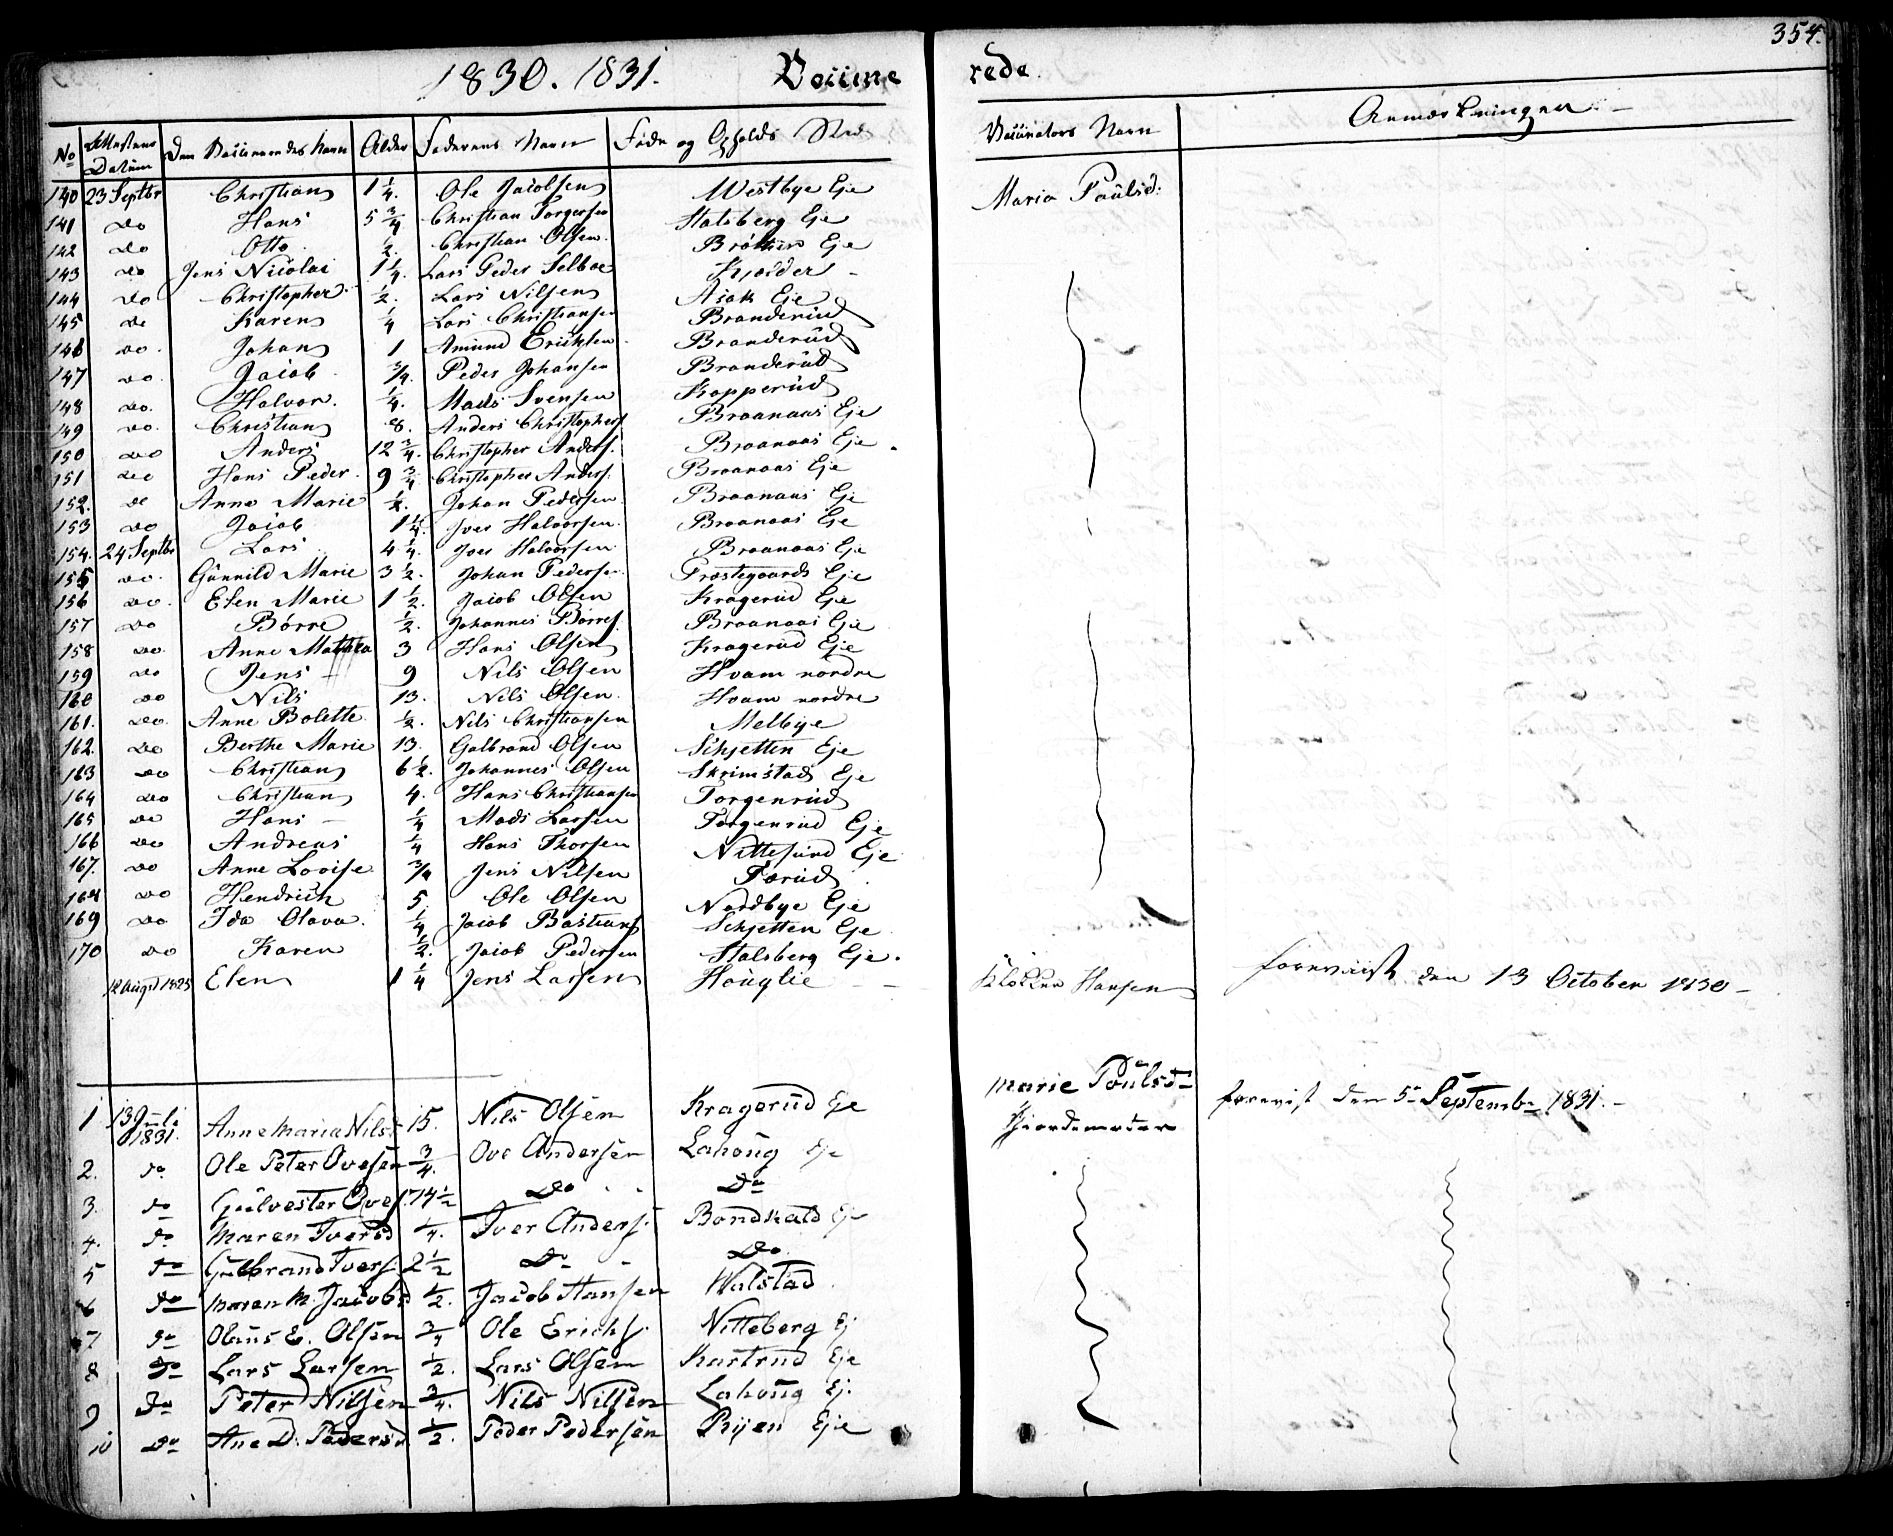 354.
1830. 1831. Vaccinerede.
No Attestens Datum Den Vaccineredes Navn Alder Faderens Navn Føde og Opholds Sted Vaccinators Navn Anmærkninger
140 23 Septbr Christian 1 1/4. Ole Jacobsen Westbye Eje Maria Paulsd:
141 do Hans 5 3/4 Christian Torgersen Stalsberg Eje
142 do Otto 1/2. Christian Olsen. Eje
143 do Jens Nicolai 1 1/4. Lars Peder Selboe
144 do Christopher. 1/2. Lars Nilsen Asak Eje
145 do Karen 1/4 Lars Christiansen Branderud
146 do. Johan 1 Amund Erichsen Branderud
147 do. Jacob 3/4. Peder Johansen Branderud
148 do. Halvor. 1/4. Mads Svensen Kopperud
149 do. Christian 8. Anders Christophers. Braanaas Eje
150 do Anders 12 3/4. Christopher Anders. Braanaas Eje
151 do Hans Peder. 9 3/4 Christopher Anders. Braanaas Eje
152. do Anne Marie 1/2. Johan Pedersen. Braanaas Eje
153 do Jacob 1 1/4. Iver Halvorsen. Braanaas Eje
154. 24 Septbr Lars 4 1/4. Iver Halvorsen Braanaas Eje
155 do. Gunnild Marie 3 1/2. Johan Pedersen Præstegaards Eje
156 do. Elen Marie 1 1/2. Jacob Olsen Kragerud Eje
157 do Børre 1/2. Johannes Børres. Braanaas Eje
158 do. Anne Mathea 3 Hans Olsen Kragerud Eje
159 do Jens 9 Nils Olsen Hvam nordre
160 do Nils 13. Nils Olsen. Hvam nordre
161. do. Anne Bolette. 1/2. Nils Christiansen Melbye
162. do Berthe Marie 13. Gulbrand Olsen Schjetten Eje
163 do Christian 6 1/2. Johannes Olsen Skrimstad Eje
164 do Christian 4. Hans Christiansen Torgenrud
165 do Hans 1/4 Mads Larsen Torgenrud Eje
166 do Andreas 1/4 Hans Thorsen Eje
167. do Anne Lovise 3/4 Jens Nilsen Tærud
168 do Hendrich 5. Ole Olsen Nordbye Eje
169 do Ida Olava. 1/4 Jacob Bastians Schjetten Eje
170 do Karen 1/2. Jacob Pedersen Stalsberg Eje.
12 Augst 1825 Elen 1 1/4 Jens Larsen Hauglie Klokker Hansen foreviist den 13 October 1830
1 13 Juli 1831. Anne Maria Nilsd 15. Nils Olsen Kragerud Eje Marie Poulsd Giordemoder forevist den 5 Septembr 1831.
2. do Ole Peter Ovesen 3/4. Ove Andersen Lahoug Eje
3. do Gulvester Oves. 14 1/2 Do Do
4. do Maren Iversd 1/4. Iver Anders. Bondkald Eje
5 do Gulbrand Ivers. 2 1/2 Do Do.
6 do Maren M. Jacobsd 1/2. Jacob Hansen Wolstad
7 do Olaus E. Olsen 3/4 Ole Erichs. Nitteberg Ej
8 Do Lars Larsen 1/2. Lars Olsen Kastrud Eje
9 Do Peter Nilsen 3/4. Nils Nilsen Lahoug Ej.
10 Do Ane D. Pedersd 1/2. Peder Pedersen Ryen Eje